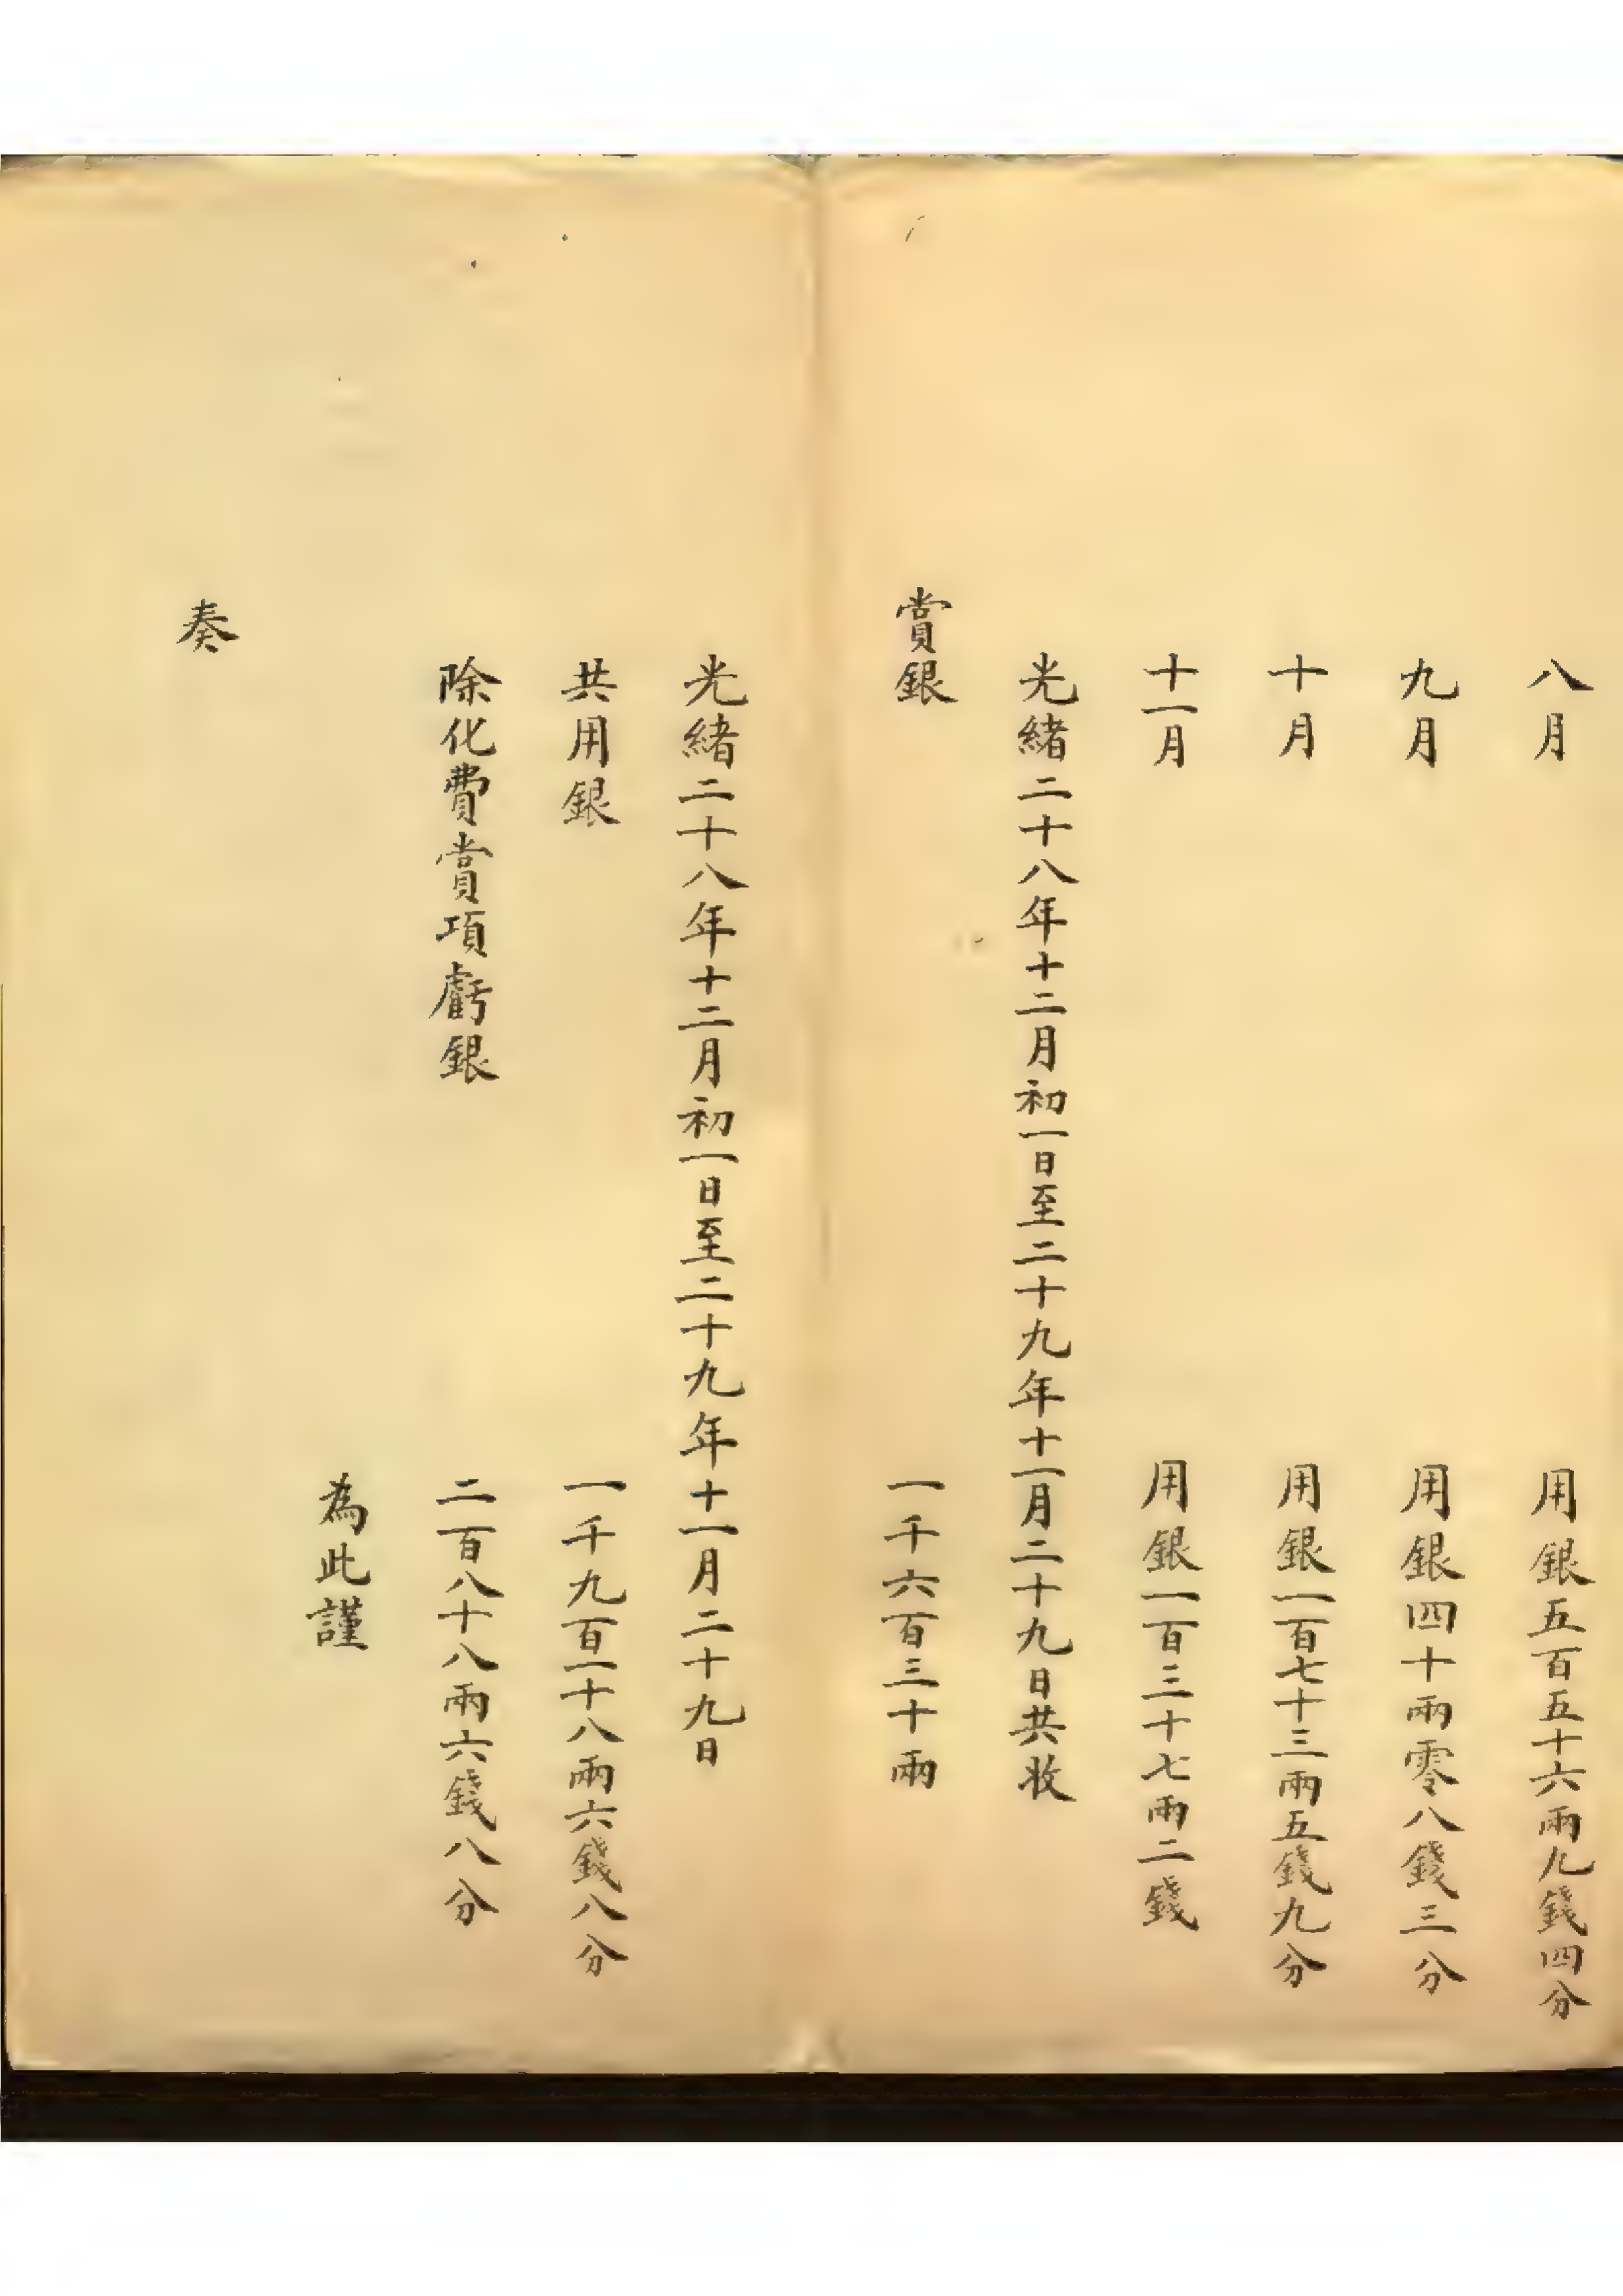 八月 用銀五百五十六兩九錢四分
九月 用銀四十兩零八錢三分
十月 用銀一百七十三兩五錢九分
十一月 用銀一百三十七兩二錢
光緒二十八年十二月初一日至二十九年十一月二十九日共收
賞銀 一千六百三十兩
光緒二十八年十二月初一日至二十九年十一月二十九日
共用銀 一千九百一十八兩六錢八分
除化費賞項虧銀 二百八十八兩六錢八分
為此謹
奏